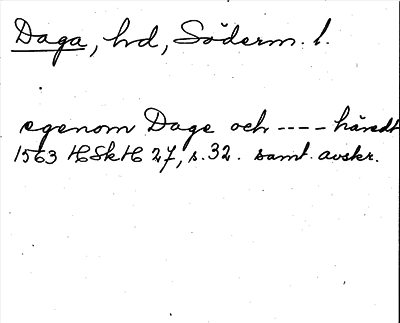 Daga, hd, Söderm. l.
egenom Dage och ---- häredt
1563 HSkH 27, s.32. samt. avskr.